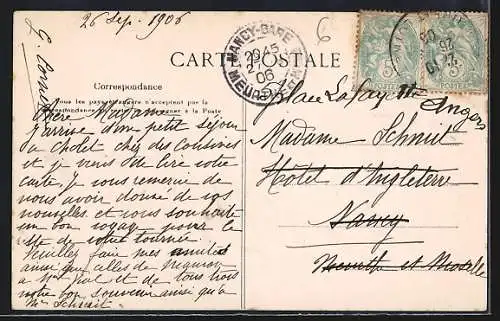 26 Sep. 1906
6
NANCY-GARE
06
CARTE POSTALE
Correspondance
Tous les pays étrangers n'acceptent pas la
à la Poste
Chère Madame
J'arrive d'un petit séjour
a Cholet chez des Cousines
et je viens de lire votre
carte. Je vous remercie de
nous avoir donné de vos
nouvelles et vous souhaite
un bon voyage pour le
de votre tournée.
Veuillez faire mes amitiés
ainsi que celles de
a Mr et de tous trois
notre bon souvenir ainsi qu'a
Mr Schmit.
place Lafayette Angers
Madame Schmit
Hôtel d'Angleterre
Nancy
Meurthe et Moselle